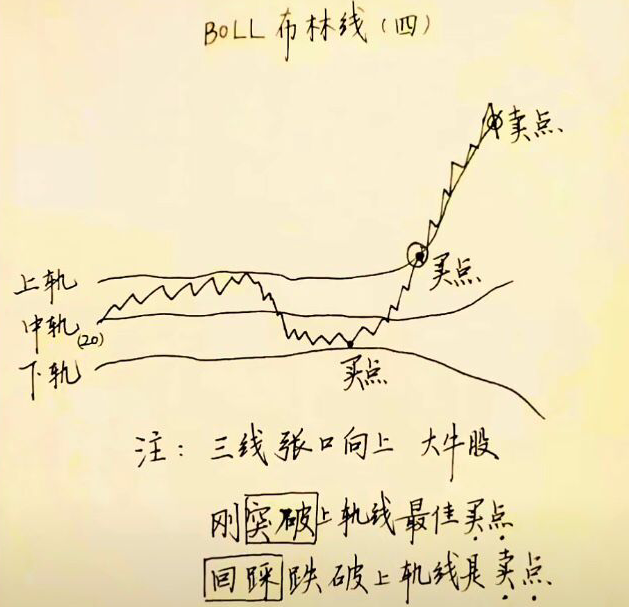 BOLL 布林线(四)
卖点
买点
上轨
中轨(20)
下轨
买点
注：三线张口向上 大牛股
刚突破上轨线最佳买点
回踩跌破上轨线是卖点